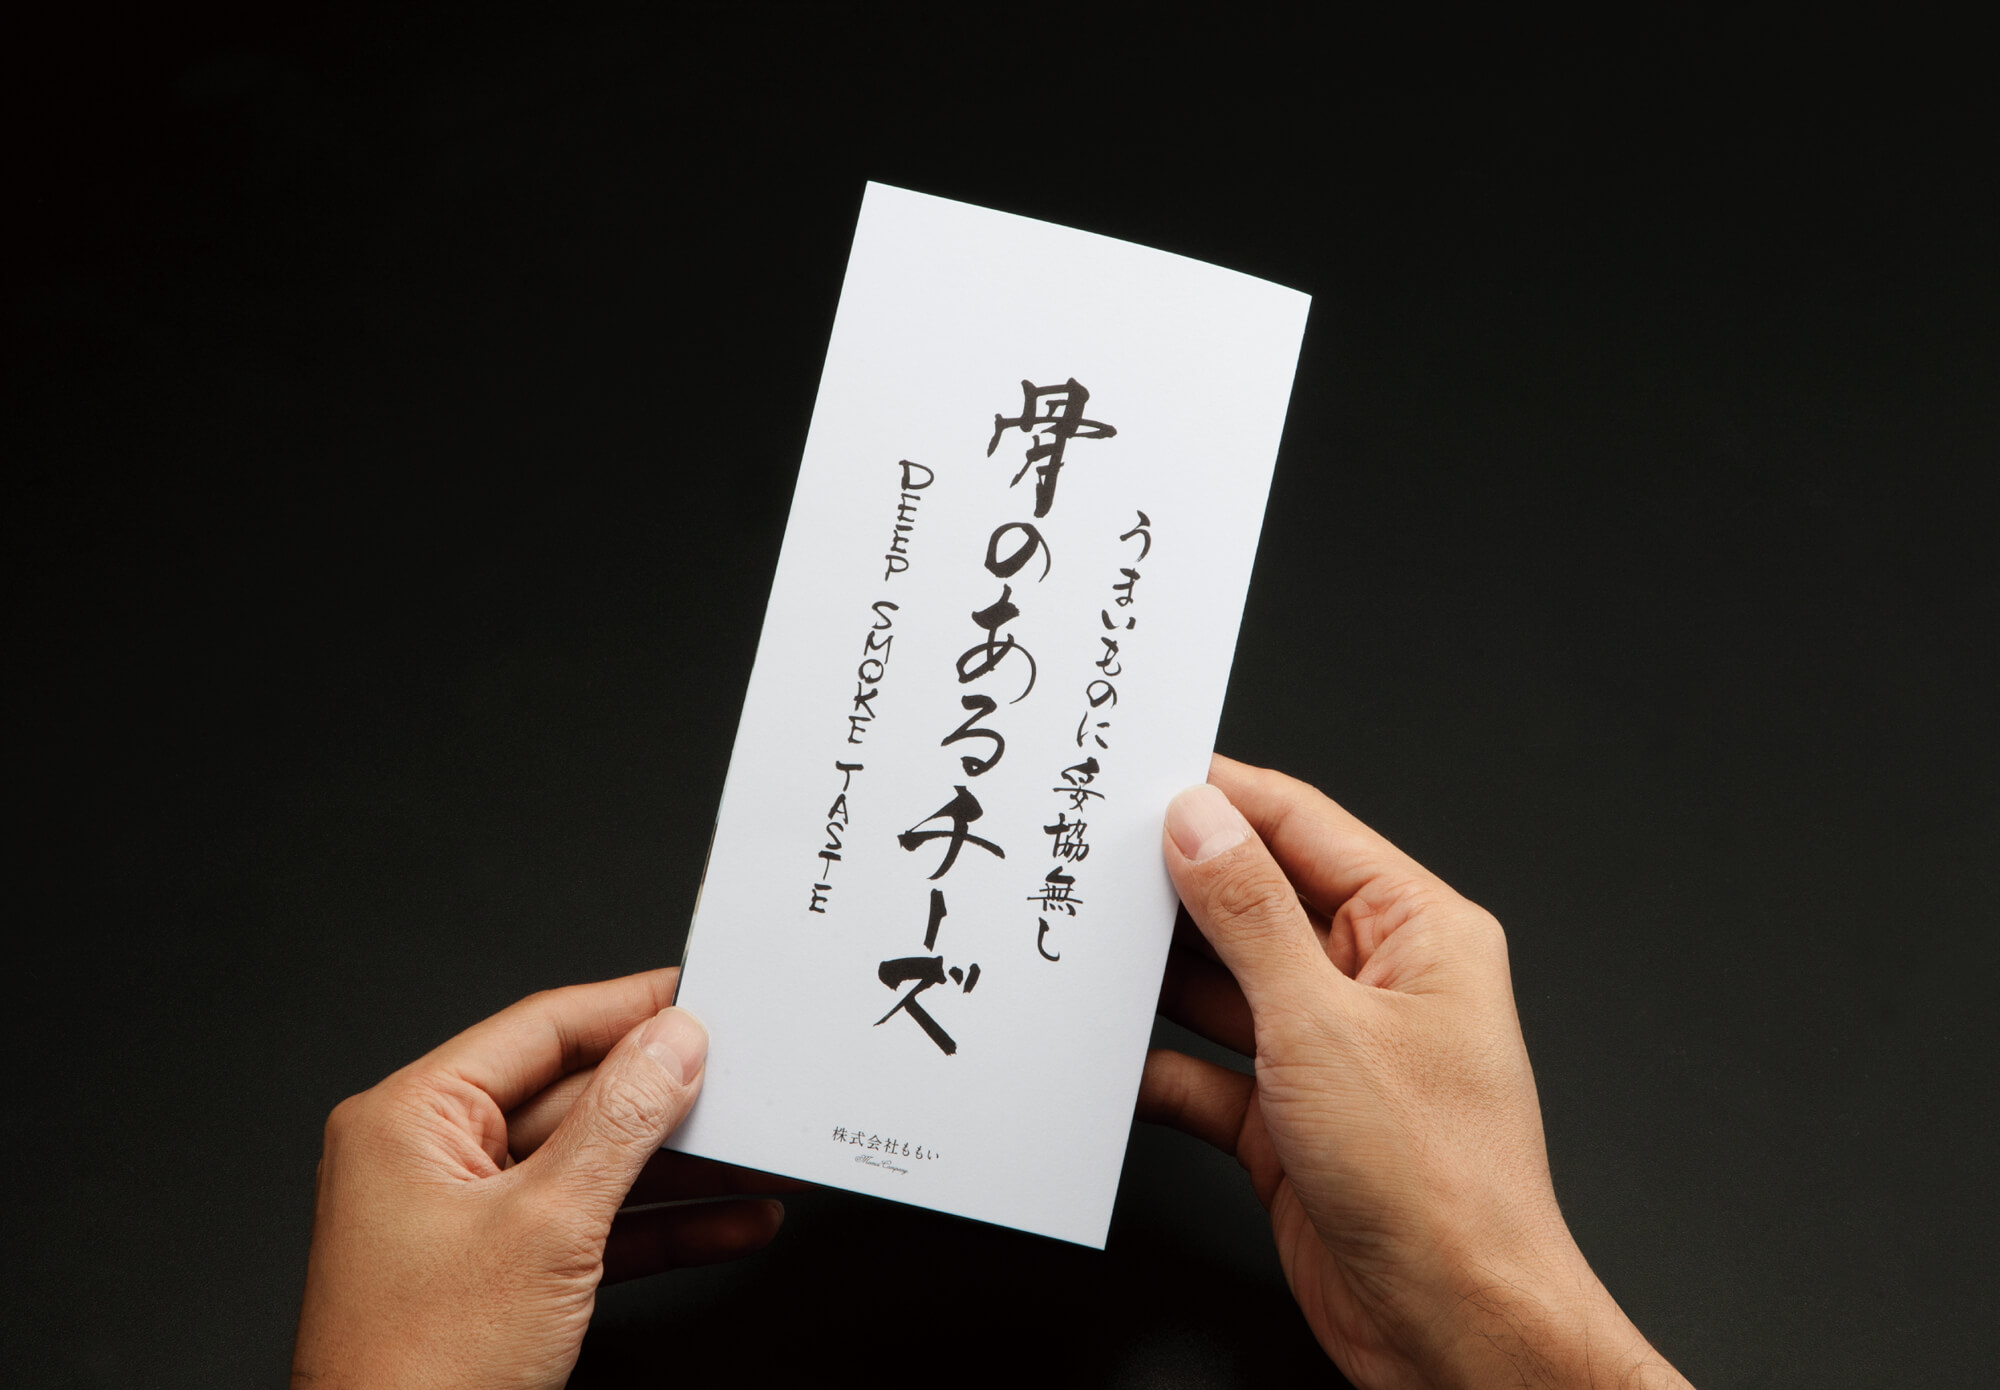 うまいものに妥協無し
骨のあるチーズ
DEEP SMOKE TASTE
株式会社ももい
Momoi Company